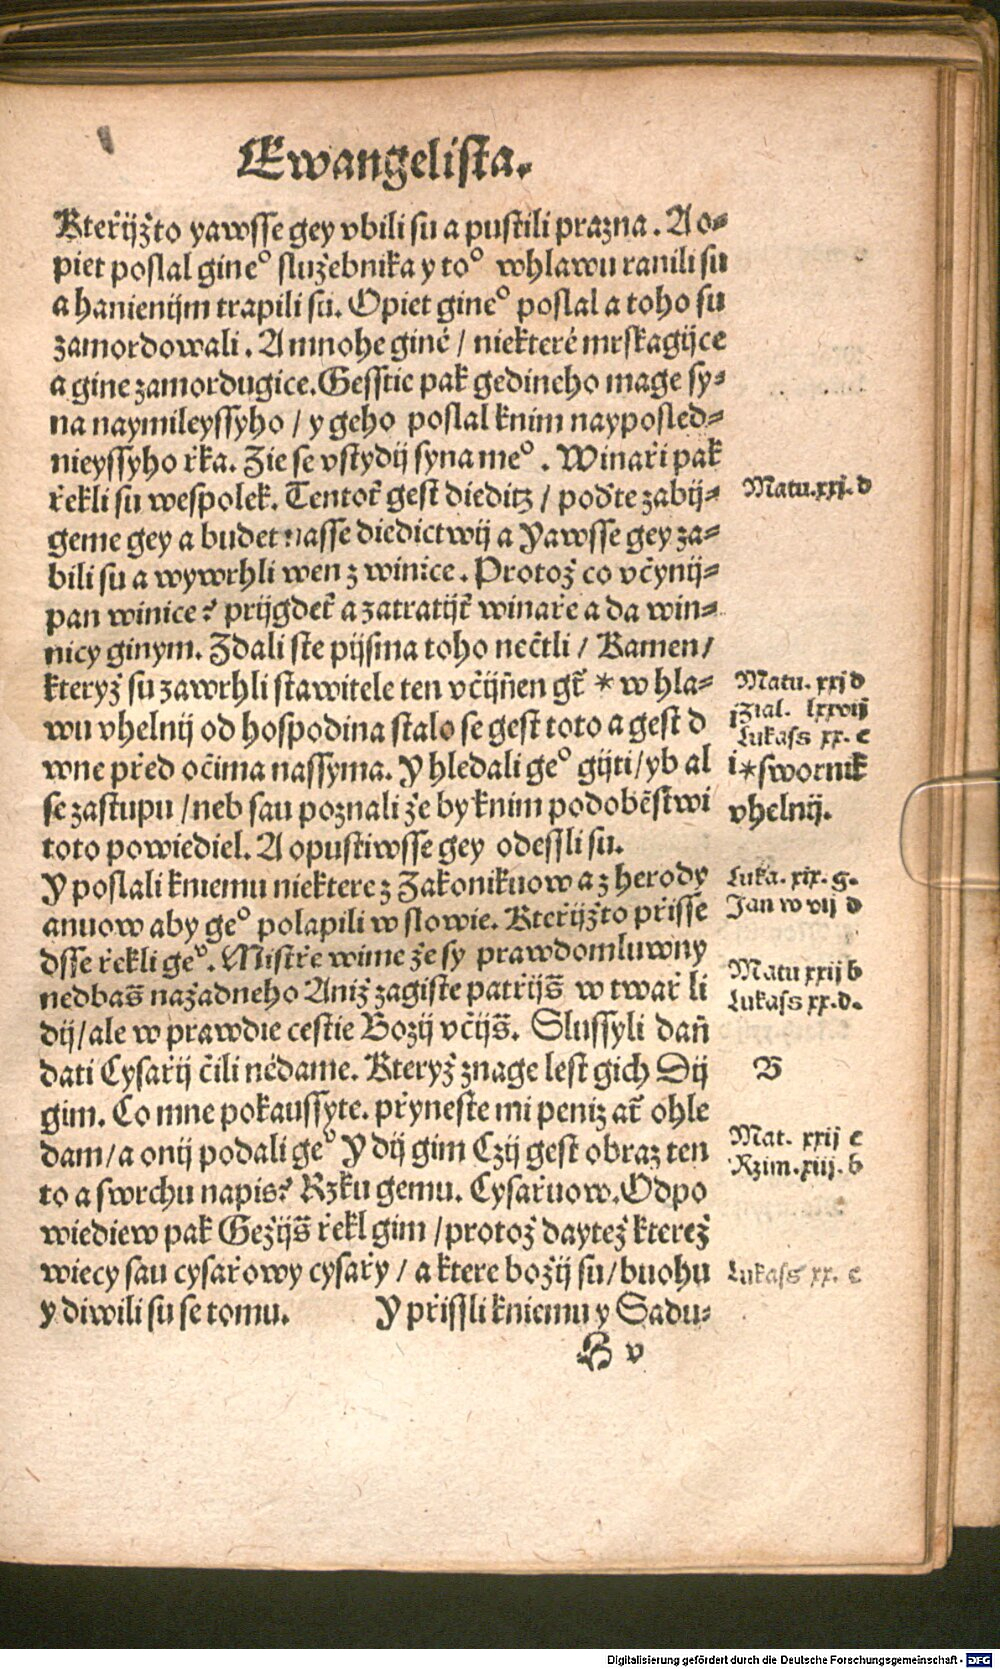 Ewangelista.
Kteřijžto yawsse gey vbili su a pustili prazna. A o⸗
piet poslal gineº služebnika y toº whlawu ranili su
a hanienijm trapili su. Opiet gineº poslal a toho su
zamordowali. A mnohe ginē / niekterē mrskagijce
a gine zamordugice. Gesstie pak gedineho mage sy⸗
na naymileyssyho / y geho poslal knim nayposled⸗
nieyssyho řka. Zie se vstydij syna meº. Winaři pak
řekli su wespolek. Tentoť gest dieditz / poďte zabij⸗
geme gey a budet nasse diedictwij a Yawsse gey za⸗
bili su a wywrhli wen z winice. Protož co včynij⸗
pan winice? prijgdeť a zatratijť winaře a da win⸗
nicy ginym. Zdali ste pijsma toho nečtli / Kamen /
kteryž su zawrhli stawitele ten včijněn gť * w hla⸗
wu vhelnij od hospodina stalo se gest toto a gest d
wne před očima nassyma. Y hledali geº gijti / yb al
se zastupu / neb sau poznali že by knim podobēstwi
toto powiediel. A opustiwsse gey odessli su.
Y poslali kniemu niektere z Zakonikuow a z herody
anuow aby geº polapili w slowie. Kteřijžto přisse
dsse řekli geº. Mistře wime že sy prawdomluwny
nedbaš nažadneho Aniž zagiste patřijš w twař li
dij / ale w prawdie cestie Bozij včijš. Slussyli dan̄
dati Cysařij čili nēdame. Kteryž znage lest gich Dij
gim. Co mne pokaussyte. přyneste mi peniz ať ohle
dam / a onij podali geº Y dij gim Czij gest obraz ten
to a swrchu napis? Rzku gemu. Cysařuow. Odpo
wiediew pak Gežijš řekl gim / protož daytež kterež
wiecy sau cysařowy cysařy / a ktere božij su / buohu
y diwili su se tomu. Y přissli kniemu y Sadu⸗
H v
Matu. xxj. d
Matu. xxj d
Zial. lxxvij
Lukass xx. c
i*swornik
vhelnij.
Luka. xix. g.
Jan w vij d
Matu xxij b
Lukass xx. d.
B
Mat. xxij c
Rzim. xiij. b
Lukass xx. c
Digitalisierung gefördert durch die Deutsche Forschungsgemeinschaft - DFG